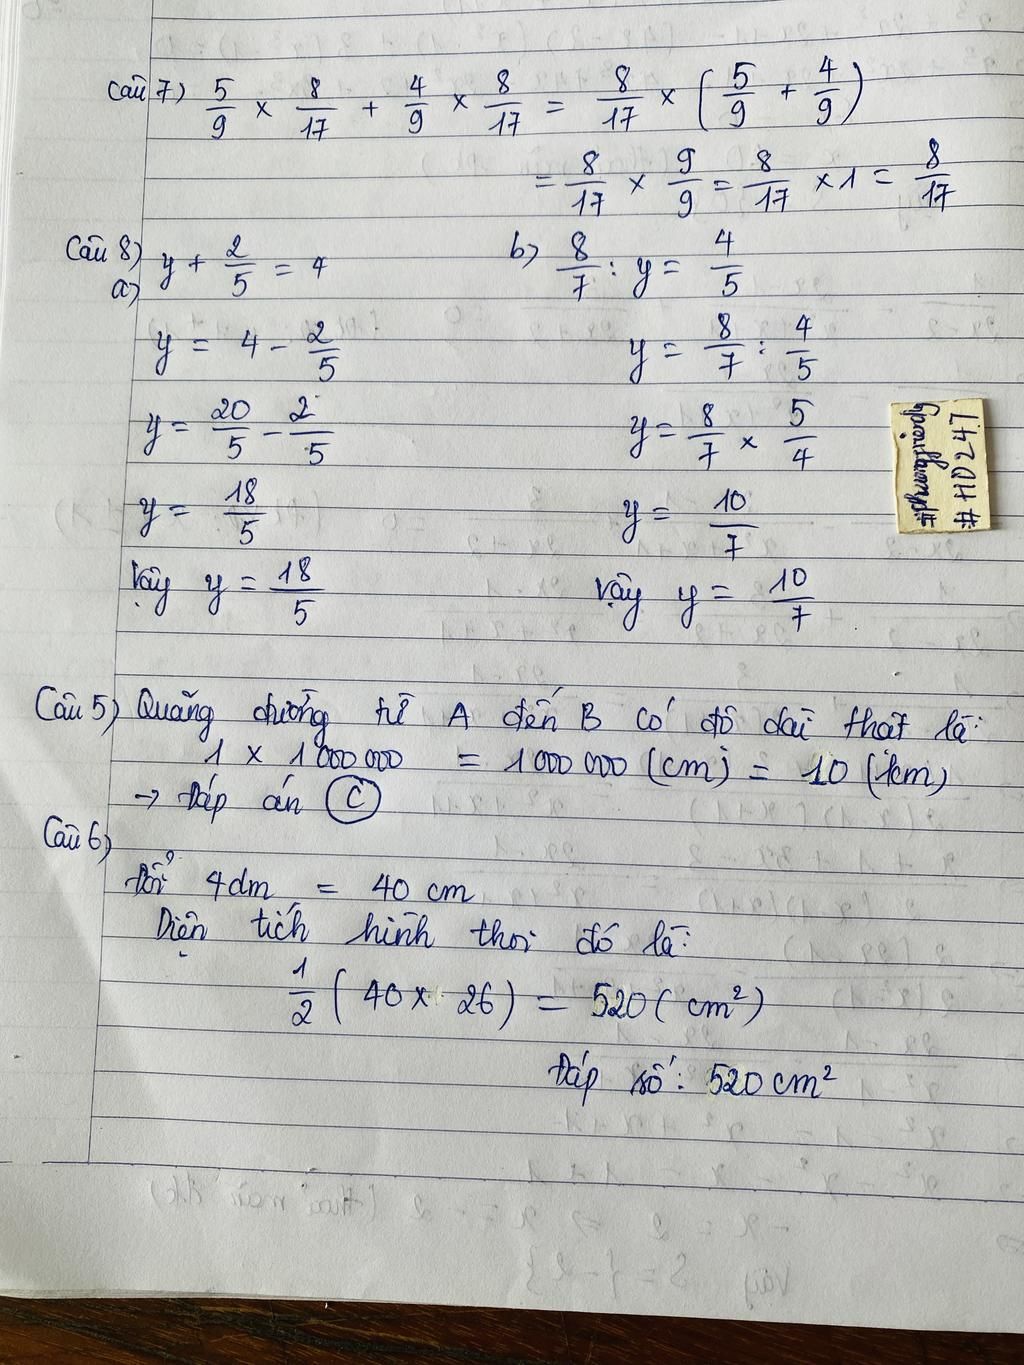 Câu 7) 5/9 × 8/17 + 4/9 × 8/17 = 8/17 × (5/9 + 4/9)
= 8/17 × 9/9 = 8/17 × 1 = 8/17
Câu 8)
a) y + 2/5 = 4
y = 4 - 2/5
y = 20/5 - 2/5
y = 18/5
Vậy y = 18/5
b) 8/7 : y = 4/5
y = 8/7 : 4/5
y = 8/7 × 5/4
y = 10/7
Vậy y = 10/7
# HD247
Câu 5) Quãng đường từ A đến B có độ dài thật là:
1 × 1000000 = 1000000 (cm) = 10 (km)
→ Đáp án C
Câu 6)
Đổi 4dm = 40 cm
Diện tích hình thoi đó là:
1/2 (40 × 26) = 520 (cm²)
Đáp số: 520 cm²